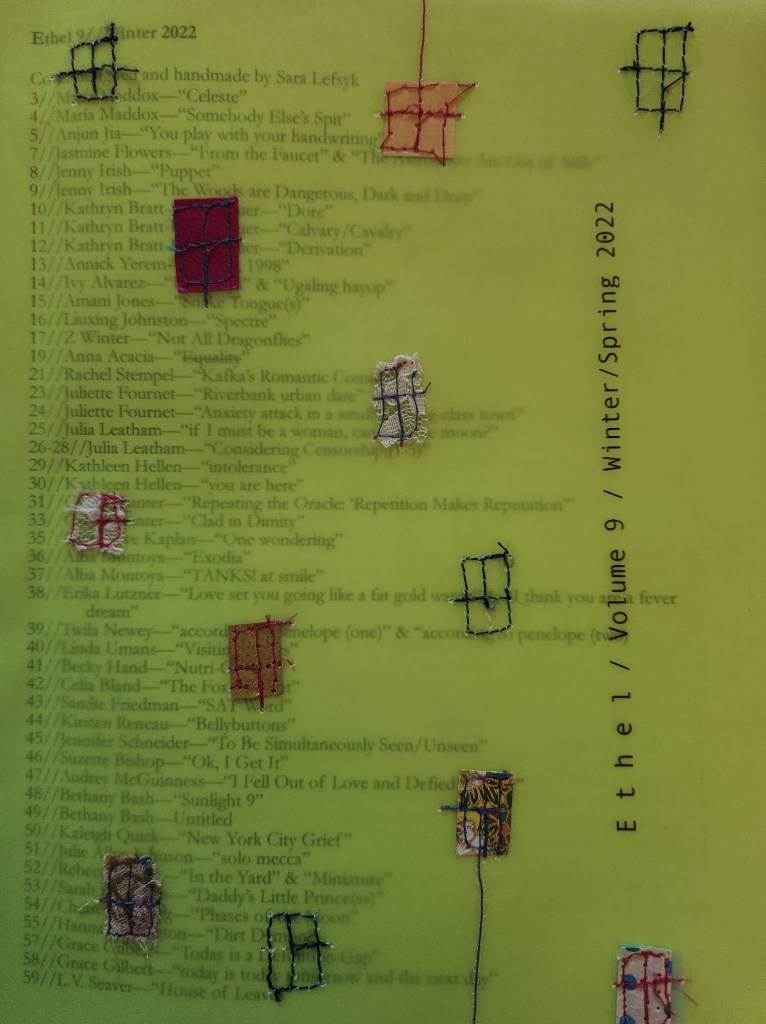 Ethel 9//Winter 2022
and handmade by Sara Lefsyk
3//Maria Maddox—“Celeste”
4//Maria Maddox—“Somebody Else’s Spit”
5//Anjun Jia—“You play with your handwriting”
7//Jasmine Flowers—“From the Faucet” & “The Are Out of Milk”
8//Jenny Irish—“Puppet”
9//Jenny Irish—“The Woods are Dangerous, Dark and Deep”
10//Kathryn Bratt- —“Dore”
11//Kathryn Bratt- —“Calvary/Cavalry”
12//Kathryn Bratt- —“Derivation”
13//Annick Yerem— 1998”
14//Ivy Alvarez— & “Ugaling hayop”
15//Amani Jones—“Snake Tongue(s)”
16//Liuxing Johnston—“Spectre”
17//Z Winter—“Not All Dragonflies”
19//Anna Acacia—“Equality”
21//Rachel Stempel—“Kafka’s Romantic
23//Juliette Fournet—“Riverbank urban date”
24//Juliette Fournet—“Anxiety attack in a small -class town”
25//Julia Leatham—“if I must be a woman, moon?”
26-28//Julia Leatham—“Considering Censorship (1-3)”
29//Kathleen Hellen—“intolerance”
30//Kathleen Hellen—“you are here”
31// —“Repeating the Oracle: ‘Repetition Makes Reputation’”
33// —“Clad in Dimity”
35// Kaplan—“One wondering”
36//Alba Montoya—“Exodia”
37//Alba Montoya—“TANKS! at smile”
38//Erika Lutzner—“Love set you going like a fat gold I think you are a fever
dream”
39//Twila Newey—“according penelope (one)” & “according to penelope (two)”
40//Linda Umans—
41//Becky Hand—
42//Celia Bland—“The
43//Sandie Friedman—“SAT Word”
44//Kirsten Reneau—“Bellybuttons”
45//Jennifer Schneider—“To Be Simultaneously Seen/Unseen”
46//Suzette Bishop—“Ok, I Get It”
47//Audrey McGuinness—“I Fell Out of Love and Defied
48//Bethany Bash—“Sunlight 9”
49//Bethany Bash—Untitled
50//Kaleigh Quick—“New York City Grief”
51//Julie —“solo mecca”
52// “In the Yard” & “Miniature”
53//Sarah “Daddy’s Little Prince(ss)”
54// “Phases of the Moon”
55// “Dirt
57//Grace Gilbert—“Today is a Gap”
58//Grace Gilbert—“today is today tomorrow and the next day”
59//L.V. Seaver—“House of
Ethel / Volume 9 / Winter/Spring 2022